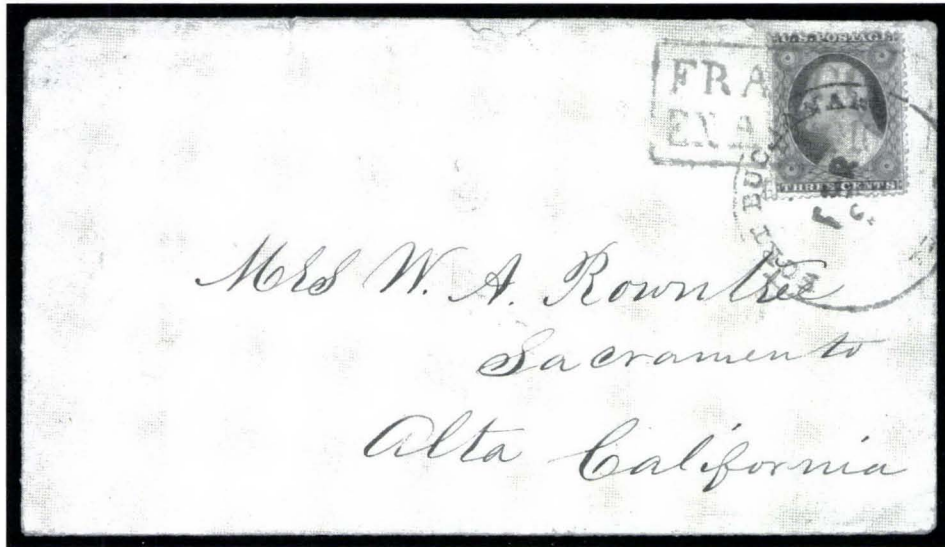 U.S. POSTAGE
THREE CENTS
FRA
ENA
Mrs W. A. Rowntree
Sacramento
Alta California